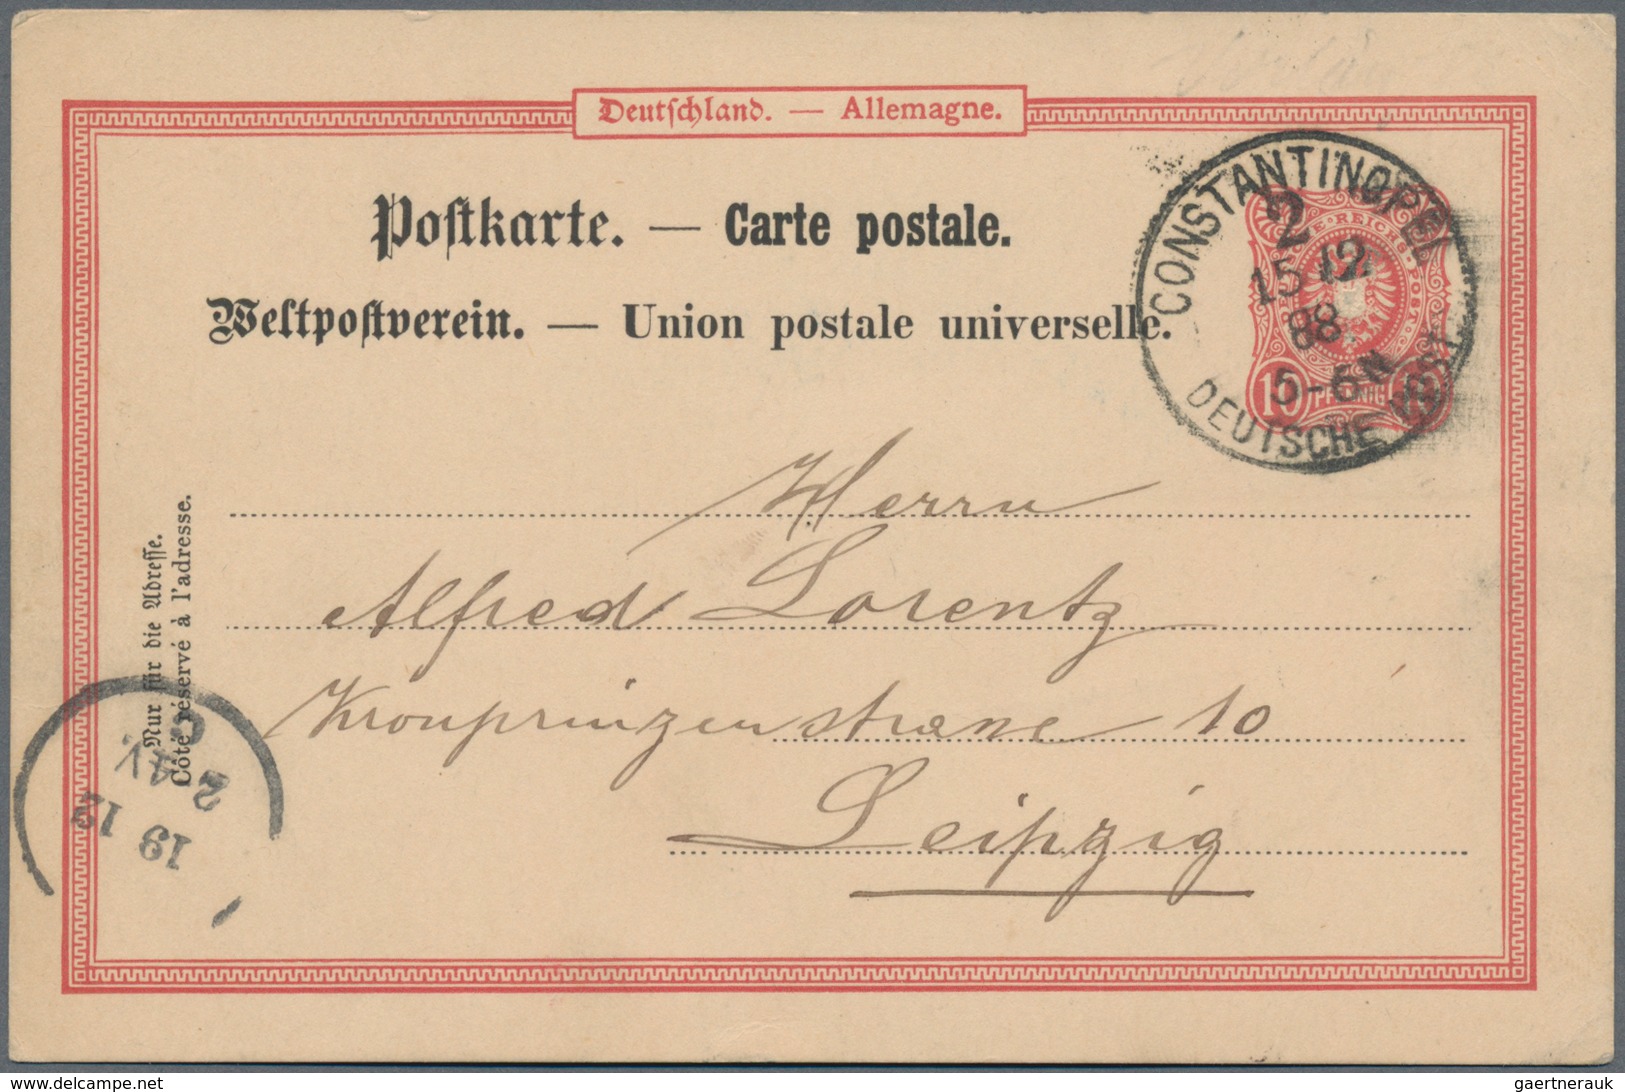 Deutschland. — Allemagne.
Postkarte. — Carte postale.
Weltpostverein. — Union postale universelle.
CONSTANTINOPEL
2
15 12
88
5-6N
DEUTSCHE POST
REICHSPOST
10 PFENNIG 10
Herrn
Alfred Lorentz
Kronprinzenstrasse 10
Leipzig
Nur für die Adresse.
Côté réservé à l'adresse.
19 12
2 4V.
delcampe.net
gaertnerauk